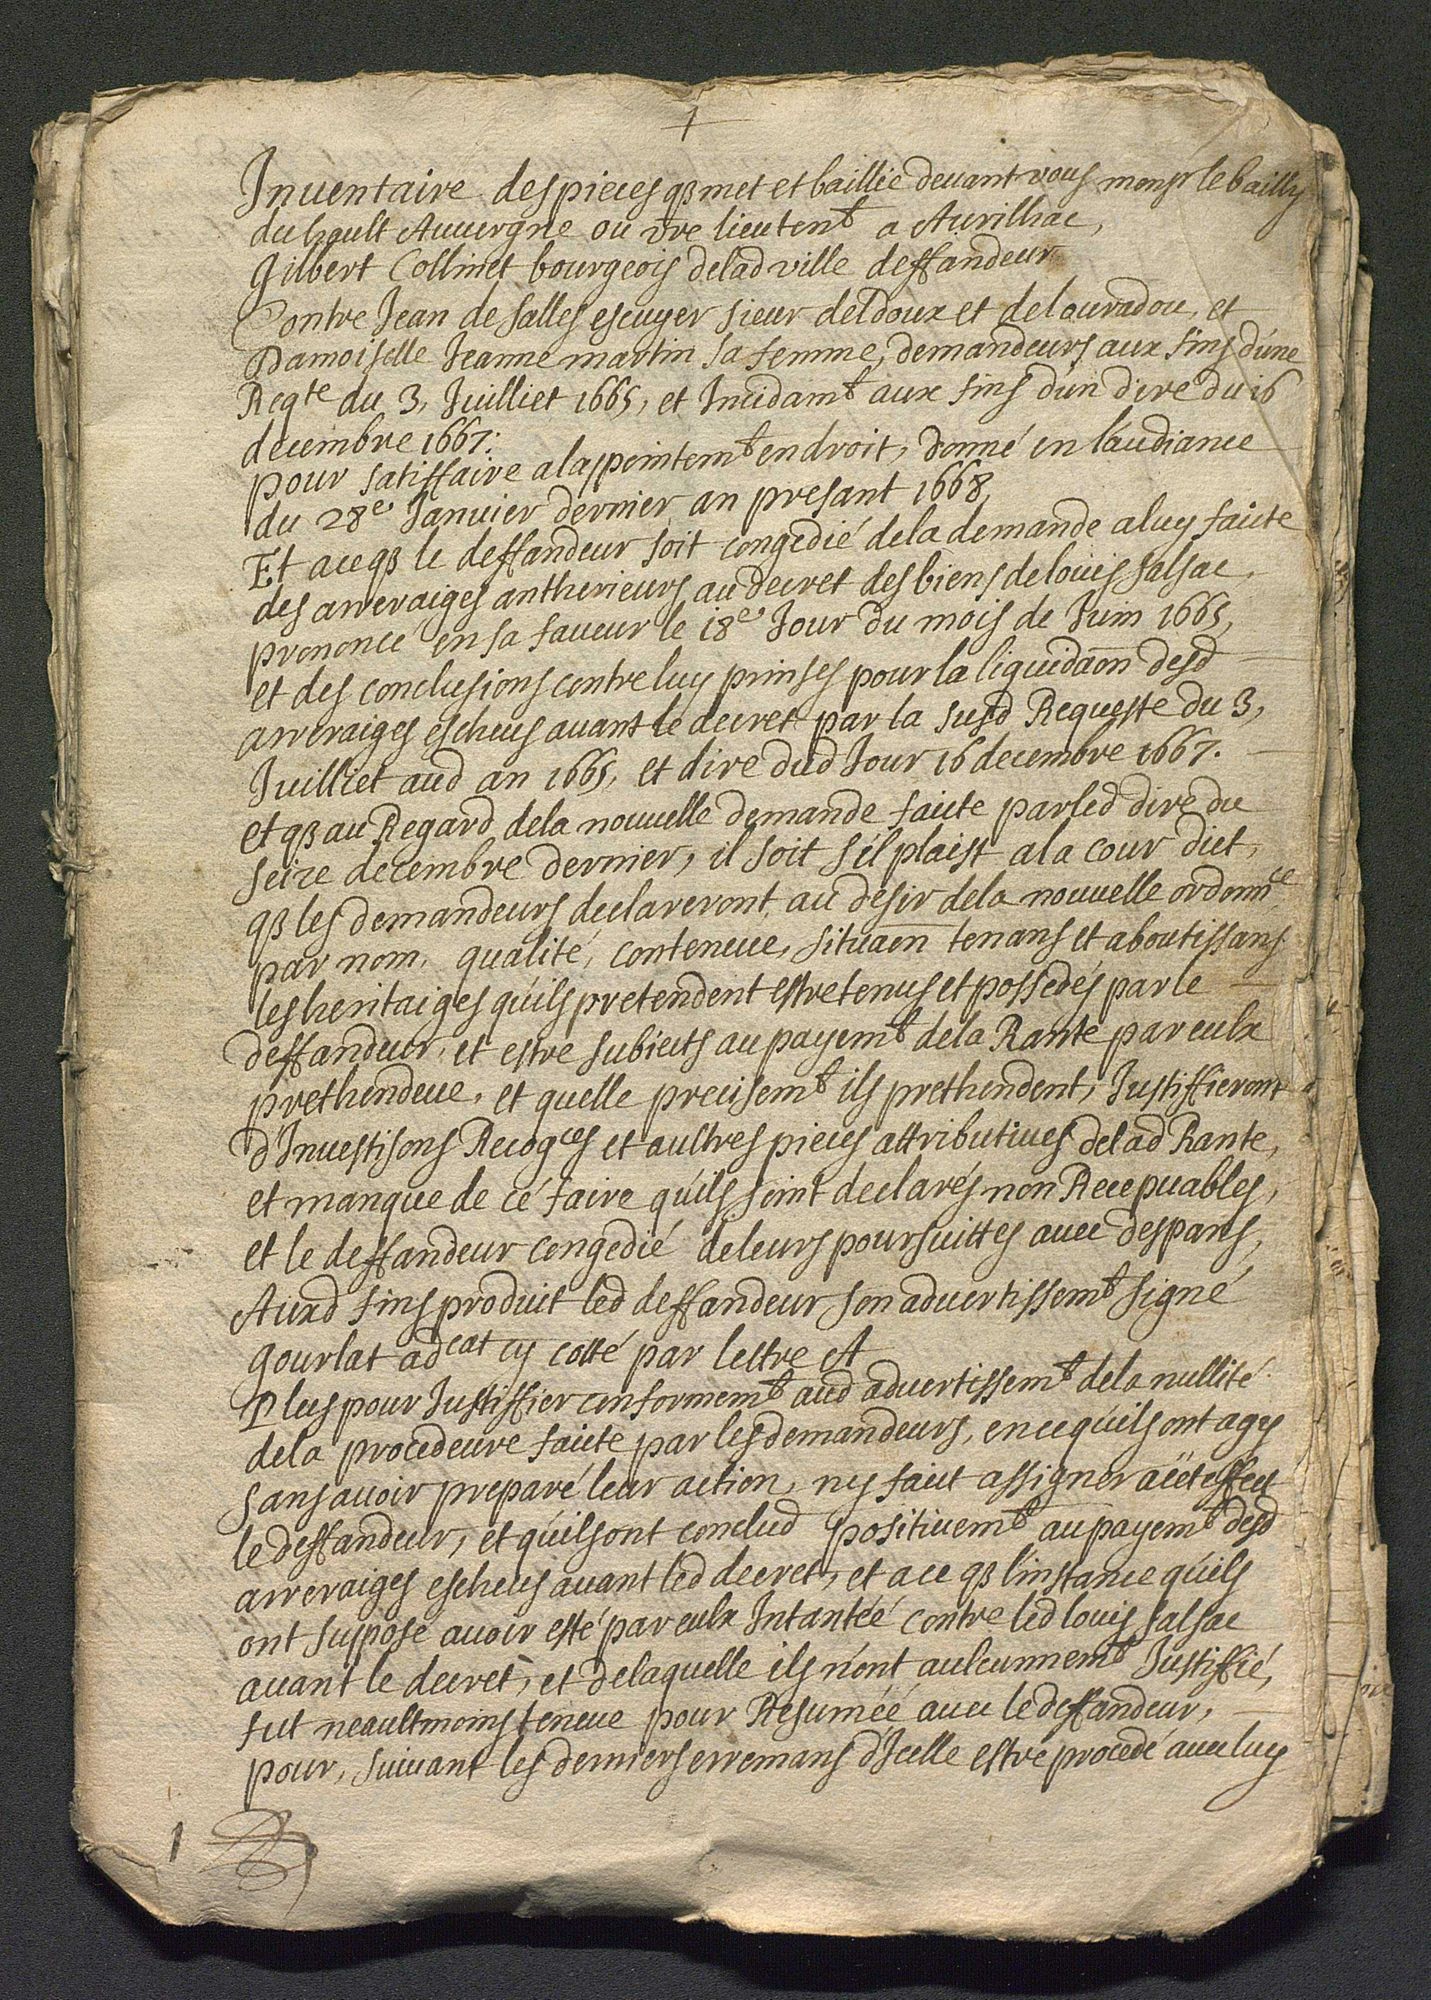 1
Inventaire des pieces q̃ met et baillie devant vous monsr le bailly
du hault Auvergne ou vre lieutent a Aurilhac,
Gilbert Collinet bourgeois delad ville deffandeur
Contre Jean de salles escuyer sieur deldoux et delouradou, et
Damoiselle Jeanne martin sa femme, demandeurs aux fins d'une
Reqte du 3, Juilliet 1665, et Incidamt aux fins d'un dire du 16
decembre 1667.
pour satisfaire alappointemt en droit, donné en l'audiance
du 28e Janvier dernier an presant 1668,
Et ace q̃ le deffandeur soit congedié dela demande aluy faicte
des arreraiges antherieurs au decret des biens de louis salsac,
prononcé en sa faveur le 18e Jour du mois de Juin 1665,
et des conclusions contre luy prinses pour la liquidaõn desd
arreraiges escheus avant le decret par la susd Requeste du 3,
Juilliet aud an 1665, et dire dud Jour 16 decembre 1667.
et q̃ au Regard dela nouvelle demande faicte par led dire du
seize decembre dernier, il soit s'il plaist ala cour dict,
q̃ les demandeurs declareront, au desir dela nouvelle ordonnce
par nom, qualité, contenue, situaõn tenans et aboutissans
les heritaiges qu'ils pretendent estre tenus et possedés par le
deffandeur, et estre subiects au payemt dela Rante par eulx
prethendeue, et quelle precisemt ils prethendent, Justiffieront
d'Investisons Recogces et aultres pieces attributives delad Rante,
et manque de cé faire qu'ils soint declarés non Recepvables,
et le deffandeur congedié de leurs poursuittes avec despans,
Auxd fins produit led deffandeur son advertissemt signé
gourlat adcat cy cotté par lettre A
Plus pour Justiffier conformemt aud advertissemt dela nullité
dela procedeure faicte par les demandeurs, en ce qu'ils ont agy
sans avoir preparé leur action, ny faict assigner a cet effect
le deffandeur, et qu'ils ont conclud positivemt au payemt desd
arreraiges escheus avant led decret, et a ce q̃ l'instance qu'ils
ont supposé avoir esté par eulx Intantéé contre led louis salsac
avant le decret, et delaquelle ils n'ont aulcunnemt Justiffié,
fut neaultmoins teneue pour Resuméé avec le deffandeur,
pour, suivant les derniers erremans d'Icelle estre procedé avec luy
1